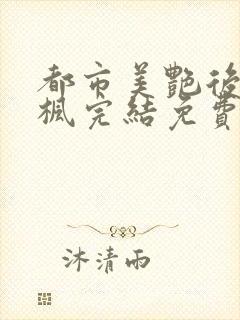 都市美艷後
楓完結免費
沐清雨